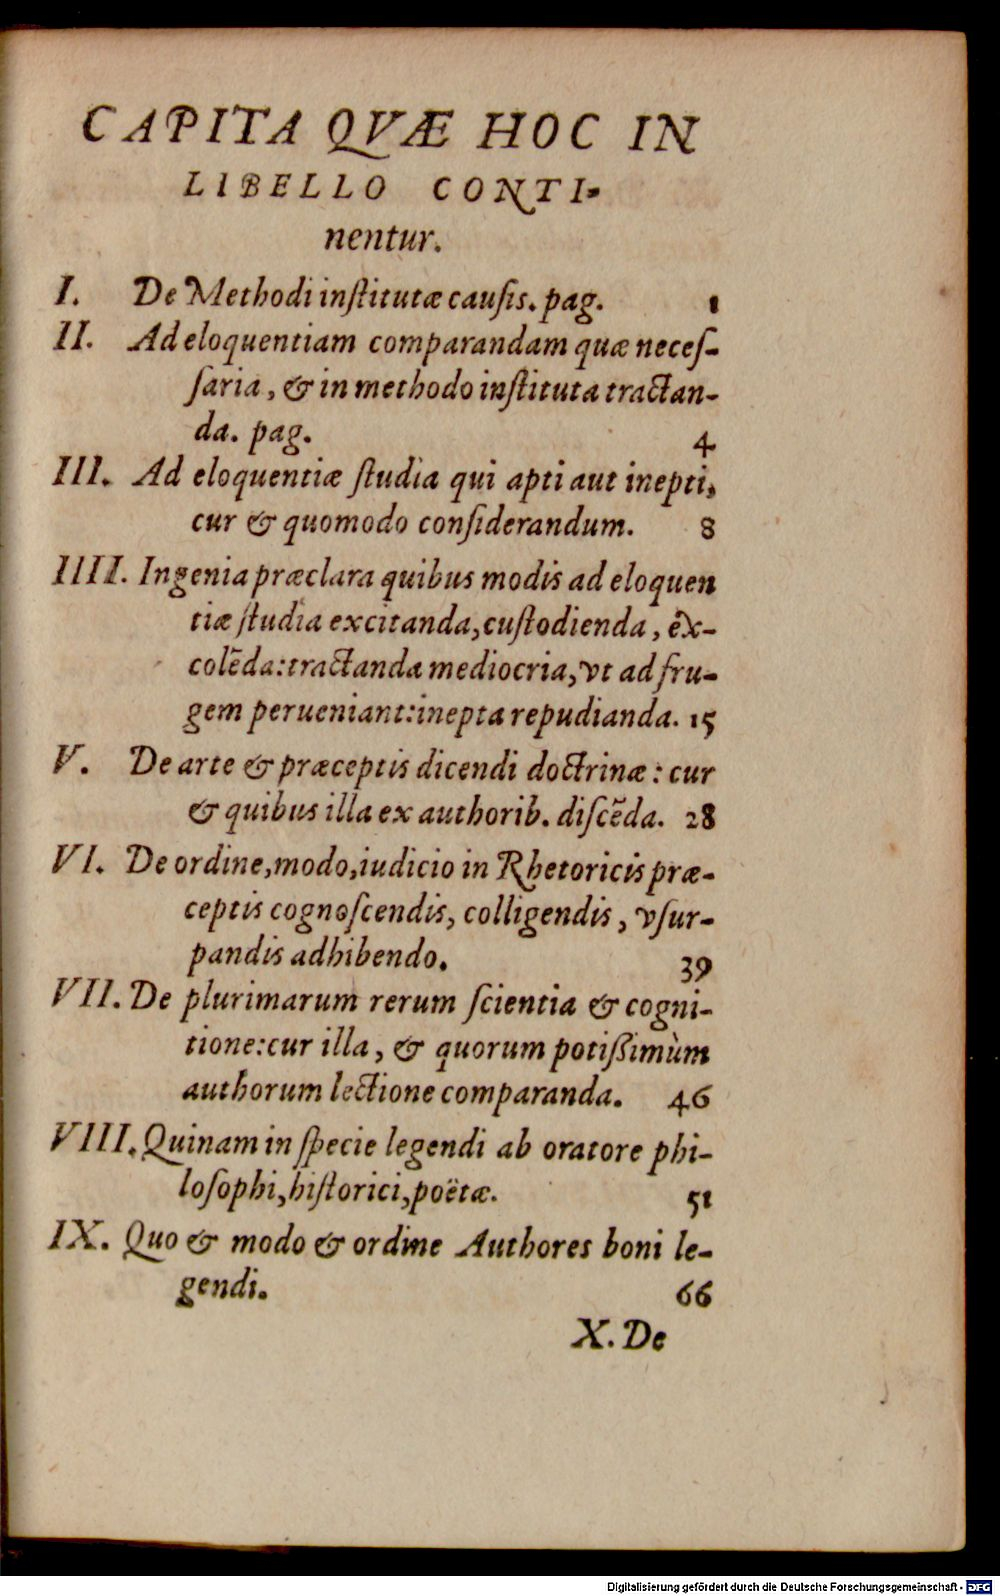 CAPITA QVÆ HOC IN
LIBELLO CONTI-
nentur.
I. De Methodi inſtitutæ cauſis. pag. 1
II. Ad eloquentiam comparandam quæ neceſ-
ſaria, & in methodo inſtituta tractan-
da. pag. 4
III. Ad eloquentiæ ſtudia qui apti aut inepti,
cur & quomodo conſiderandum. 8
IIII. Ingenia præclara quibus modis ad eloquen
tiæ ſtudia excitanda, cuſtodienda, ex-
colēda: tractanda mediocria, vt ad fru-
gem perueniant: inepta repudianda. 15
V. De arte & præceptis dicendi doctrinæ: cur
& quibus illa ex authorib. diſcēda. 28
VI. De ordine, modo, iudicio in Rhetoricis præ-
ceptis cognoſcendis, colligendis, vſur-
pandis adhibendo. 39
VII. De plurimarum rerum ſcientia & cogni-
tione: cur illa, & quorum potißimùm
authorum lectione comparanda. 46
VIII. Quinam in ſpecie legendi ab oratore phi-
loſophi, hiſtorici, poëtæ. 51
IX. Quo & modo & ordine Authores boni le-
gendi. 66
X. De
Digitalisierung gefördert durch die Deutsche Forschungsgemeinschaft - DFG